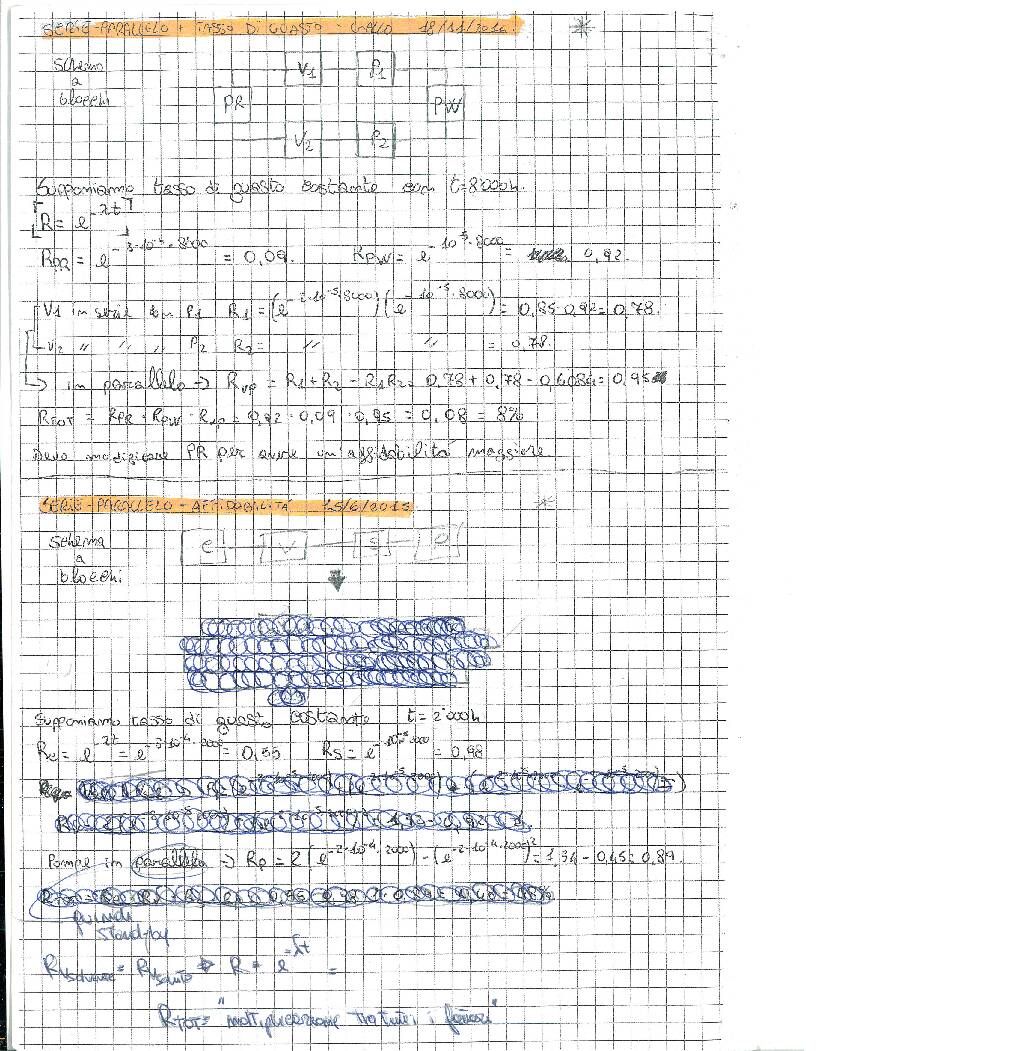 SERIE-PARALLELO + TASSO DI GUASTO - 18/11/2016
Schema
a
blocchi
V1 P1
PR PW
V2 P2
Supponiamo tasso di guasto costante con t=8000h.
[R = e^-λt]
RPR = e^-3·10^-4·8000 = 0,09. RPW = e^-10^-5·8000 = 0,92.
V1 in serie con P1 R1 = (e^-2·10^-5·8000)(e^-10^-5·8000) = 0,85·0,92 = 0,78.
V2 " " " P2 R2 = " " = 0,78.
↳ in parallelo → Rvp = R1 + R2 - R1R2 = 0,78 + 0,78 - 0,6084 = 0,95
RTOT = RPR · RPW · Rvp = 0,92 · 0,09 · 0,95 = 0,08 = 8%
Devo modificare PR per avere un'affidabilità maggiore
SERIE-PARALLELO - AFFIDABILITÀ 15/6/2015
Schema
a
blocchi.
C V S P
Supponiamo tasso di guasto costante t=2000h
Rc = e^-λt = e^-3·10^-4·2000 = 0,55 Rs = e^-10^-5·2000 = 0,98
Pompe in parallelo → Rp = 2(e^-2·10^-4·2000) - (e^-2·10^-4·2000)² = 1,34 - 0,45 = 0,89.
quindi
stand-by
R = e^-λt =
RTOT = "moltiplicazione tra tutti i fattori"